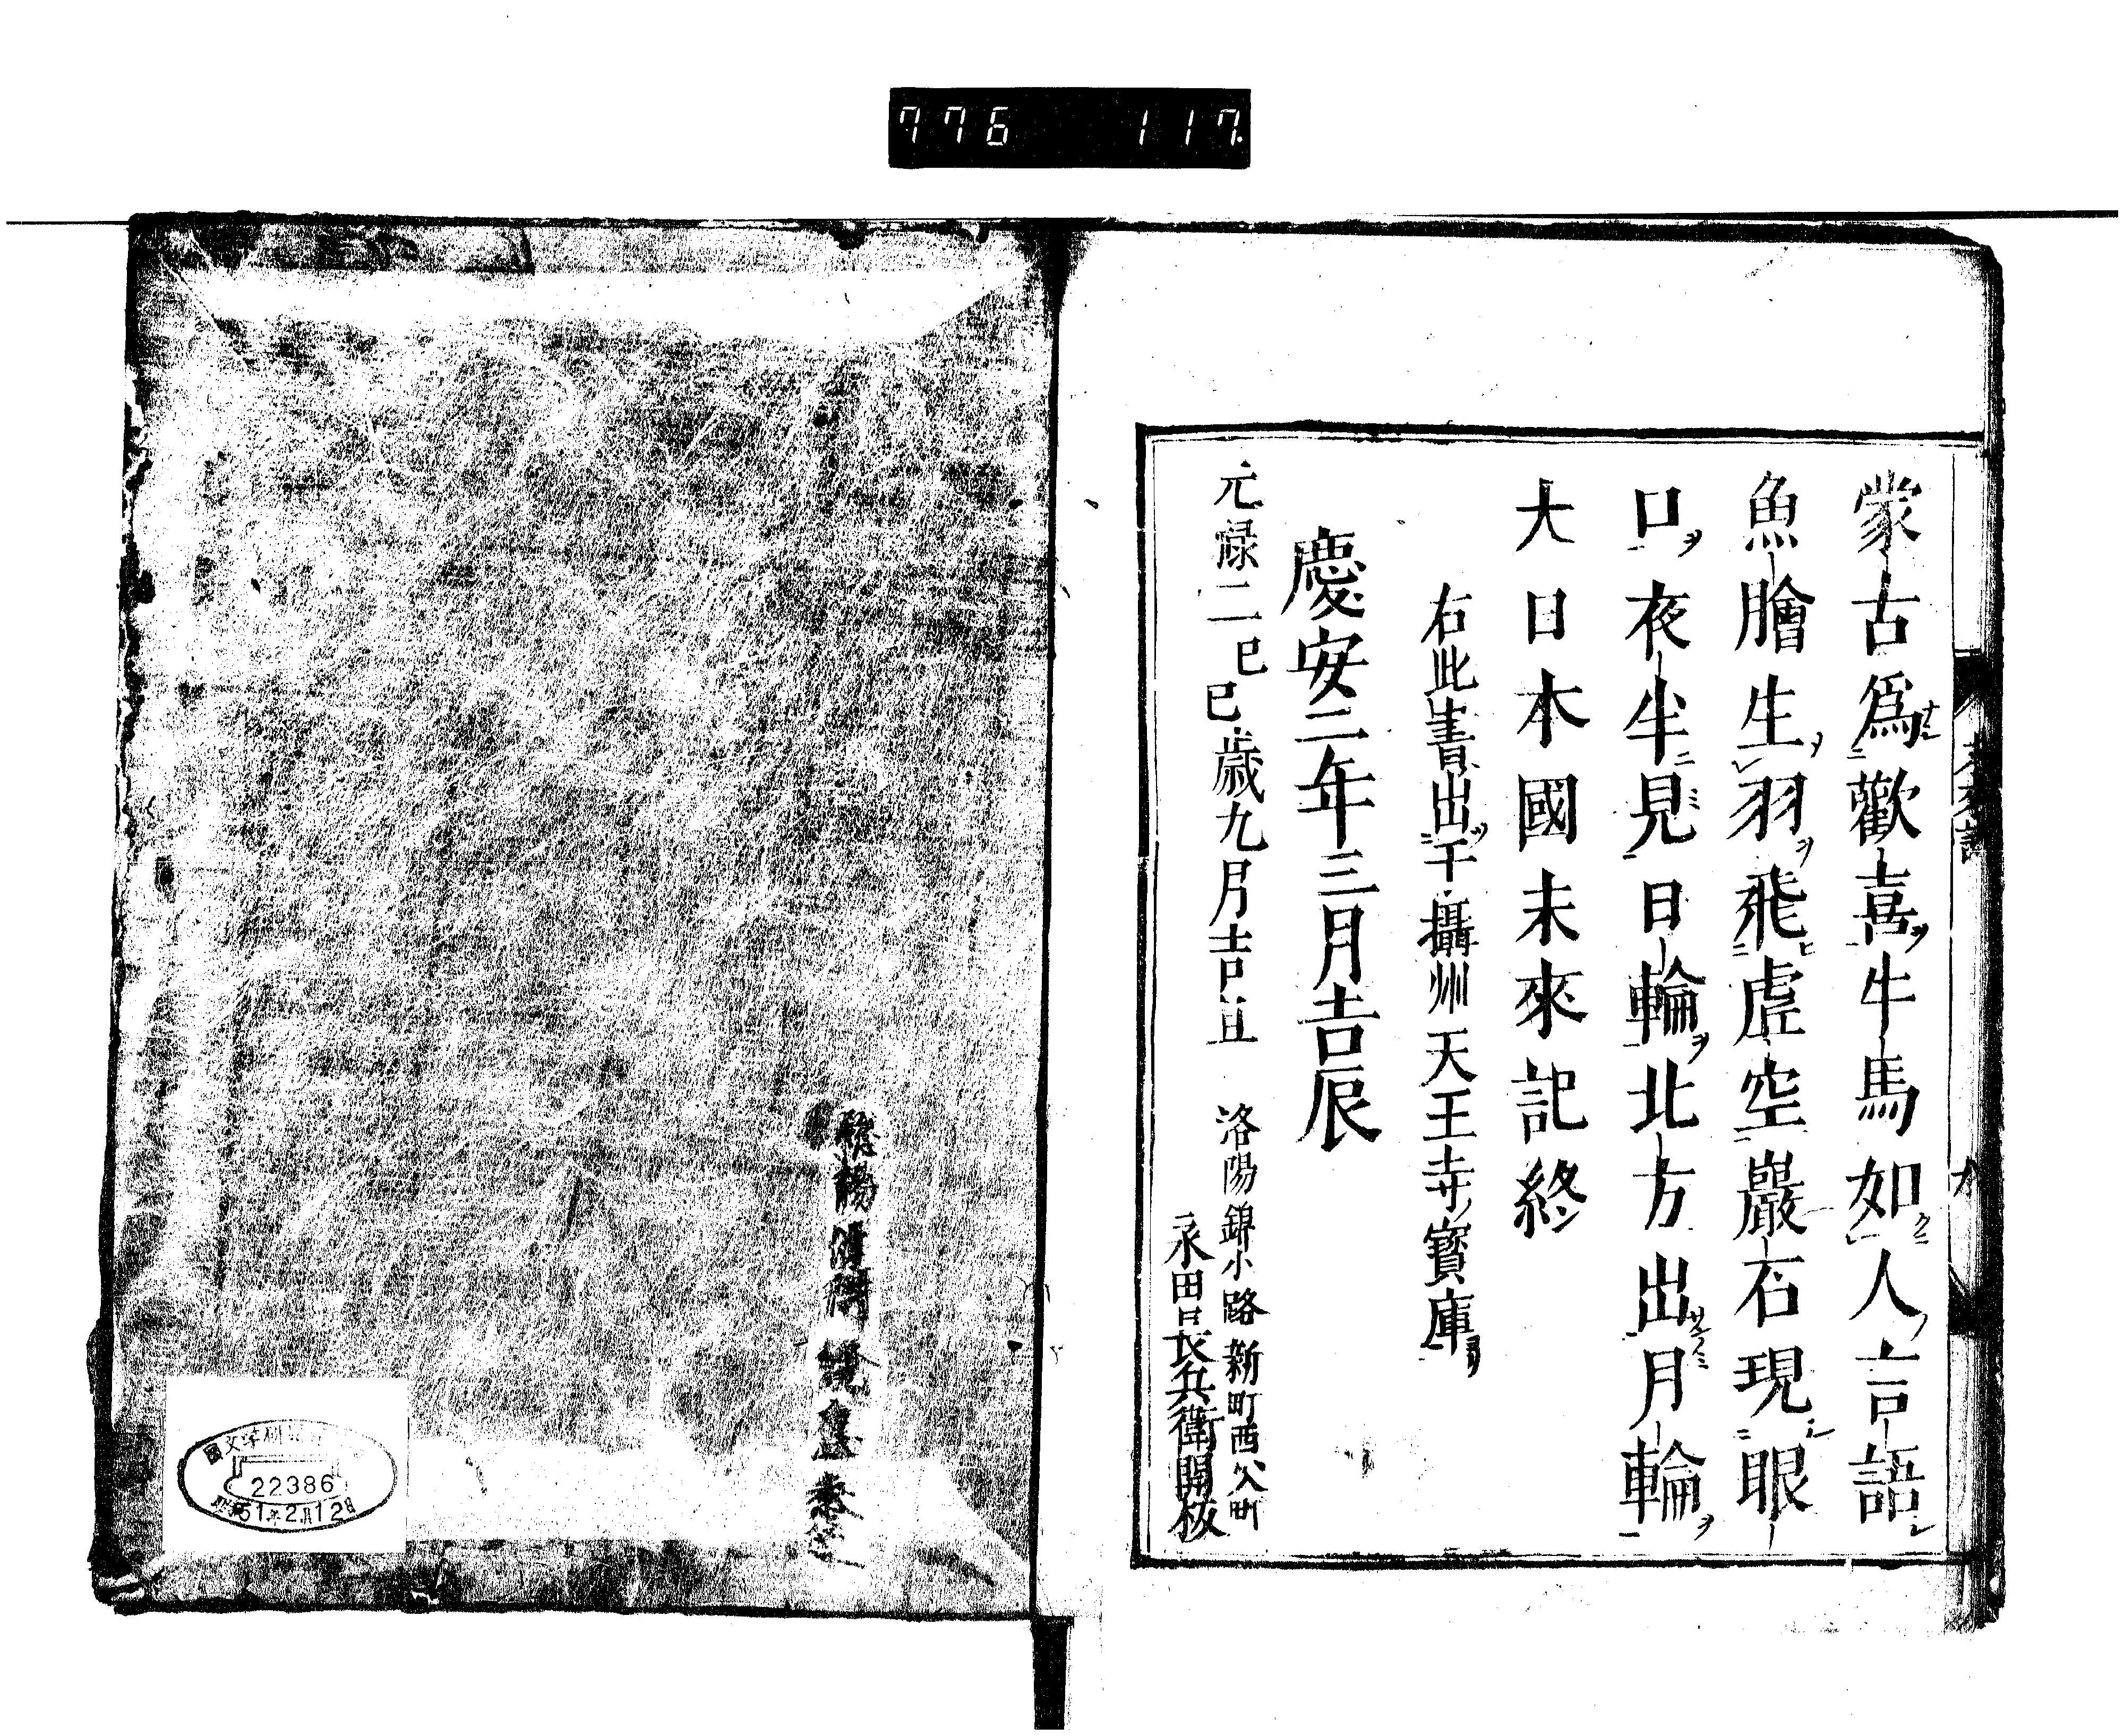 776 117
蒙古爲歡喜牛馬如人言語
魚膾生羽飛虚空巖石現眼
口夜半見日輪北方出月輪
大日本國未來記終
右此書出于攝州天王寺寳庫
慶安二年三月吉辰
元禄二己巳歳九月吉旦 洛陽錦小路新町西入町
永田長兵衛開板
22386
61年2月12日